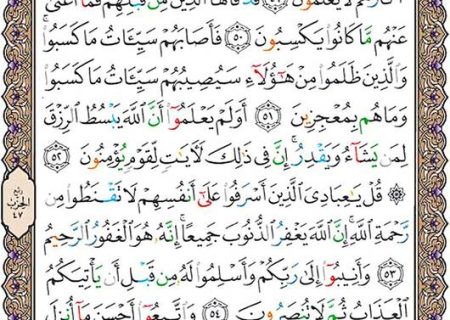 أَكْثَرَهُمْ لَا يَعْلَمُونَ ۝٤٩ قَدْ قَالَهَا الَّذِينَ مِن قَبْلِهِمْ فَمَا أَغْنَىٰ
عَنْهُم مَّا كَانُوا۟ يَكْسِبُونَ ۝٥٠ فَأَصَابَهُمْ سَيِّـَٔاتُ مَا كَسَبُوا۟ ۚ
وَالَّذِينَ ظَلَمُوا۟ مِنْ هَـٰٓؤُلَآءِ سَيُصِيبُهُمْ سَيِّـَٔاتُ مَا كَسَبُوا۟
وَمَا هُم بِمُعْجِزِينَ ۝٥١ أَوَلَمْ يَعْلَمُوٓا۟ أَنَّ اللَّهَ يَبْسُطُ الرِّزْقَ
لِمَن يَشَآءُ وَيَقْدِرُ ۚ إِنَّ فِى ذَٰلِكَ لَـَٔايَـٰتٍ لِّقَوْمٍ يُؤْمِنُونَ ۝٥٢
۞ قُلْ يَـٰعِبَادِىَ الَّذِينَ أَسْرَفُوا۟ عَلَىٰٓ أَنفُسِهِمْ لَا تَقْنَطُوا۟ مِن
رَّحْمَةِ اللَّهِ ۚ إِنَّ اللَّهَ يَغْفِرُ الذُّنُوبَ جَمِيعًا ۚ إِنَّهُۥ هُوَ الْغَفُورُ الرَّحِيمُ
۝٥٣ وَأَنِيبُوٓا۟ إِلَىٰ رَبِّكُمْ وَأَسْلِمُوا۟ لَهُۥ مِن قَبْلِ أَن يَأْتِيَكُمُ
الْعَذَابُ ثُمَّ لَا تُنصَرُونَ ۝٥٤ وَاتَّبِعُوٓا۟ أَحْسَنَ مَآ أُنزِلَ
ربع
الحزب
٤٧